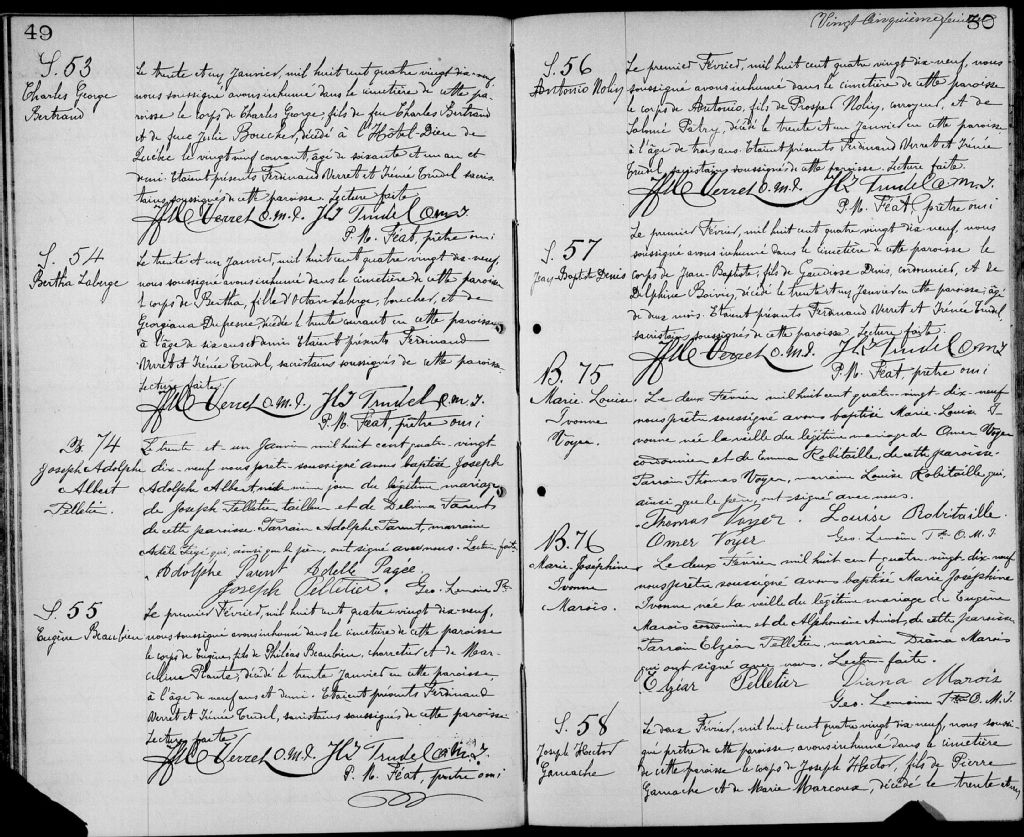 49
S. 53
Charles George
Bertrand
Le trente et un Janvier, mil huit cent quatre vingt dix-neuf,
nous soussigné avons inhumé dans le cimetière de cette pa-
roisse le corps de Charles George, fils de feu Charles Bertrand
et de feue Julie Boucher, décédé à l'Hôtel-Dieu de
Québec le vingt neuf courant, âgé de soixante et un an et
demi. Etaient présents Ferdinand Verret et Irénée Trudel sacris-
tains soussignés de cette paroisse. Lecture faite
Verret O.M.I. Trudel O.M.I.
P. M. Féat, prêtre omi
S. 54
Bertha Laberge
Le trente et un Janvier, mil huit cent quatre vingt dix-neuf,
nous soussigné avons inhumé dans le cimetière de cette paroisse
l corps de Bertha, fille d'Octave Laberge, boucher, et de
Georgiana Dufresne, décédée le trente courant en cette paroisse
à l'âge de six ans et demi. Etaient présents Ferdinand
Verret et Irénée Trudel, sacristains soussignés de cette paroisse
Lecture faite
Verret O.M.I. Trudel O.M.I.
P. M. Féat, prêtre omi
B. 74
Joseph Adolphe
Albert
Pelletier.
Le trente et un Janvier mil huit cent quatre vingt
dix-neuf nous prêtre soussigné avons baptisé Joseph
Adolphe Albert né le même jour du légitime mariage
de Joseph Pelletier tailleur et de Delima Parent
de cette paroisse. Parrain Adolphe Parent, marraine
Adèle qui, ainsi que le père, ont signé avec nous. Lecture faite
Adolphe Parent Adelle Pagée
Joseph Pelletier. Geo. Lemoine Ptre
S. 55
Eugène Beaubien
Le premier Février, mil huit cent quatre vingt dix-neuf,
nous soussigné avons inhumé dans le cimetière de cette paroisse
le corps de Eugène, fils de Philéas Beaubien, charretier et de Mar-
celline Plante, décédé le trente Janvier en cette paroisse,
à l'âge de neuf ans et demi. Etaient présents Ferdinand
Verret et Irénée Trudel, sacristains soussignés de cette paroisse
Lecture faite
Verret O.M.I. Trudel
P. M. Féat, prêtre omi
(Vingt Cinquième feuillet)
50
S. 56
Antonio Nolry
Le premier Février, mil huit cent quatre vingt dix-neuf, nous
soussigné avons inhumé dans le cimetière de cette paroisse
le corps de Antonio, fils de Prosper Nolry, corroyeur, et de
Salomé Patry, décédé le trente et un Janvier en cette paroisse
à l'âge de trois ans. Etaient présents Ferdinand Verret et Irénée
Trudel, sacristains soussignés de cette paroisse. Lecture faite.
Verret O.M.I. Trudel O.M.I.
P. M. Féat, prêtre omi
S. 57
Jean-Baptiste Denis
Le premier Février, mil huit cent quatre vingt dix neuf, nous
soussigné avons inhumé dans le cimetière de cette paroisse le
corps de Jean-Baptiste, fils de Gaudiose Denis, cordonnier, et de
Delphine Boivin, décédé le trente et un Janvier en cette paroisse, âgé
de deux mois. Etaient présents Ferdinand Verret et Irénée Trudel,
sacristains soussignés de cette paroisse. Lecture faite
Verret O.M.I. Trudel O.M.I.
P. M. Féat, prêtre omi
B. 75
Marie Louise
Yvonne
Voyer.
Le deux Février mil huit cent quatre-vingt dix-neuf
nous prêtre soussigné avons baptisé Marie-Louise Y-
vonne née la veille du légitime mariage de Omer Voyer
cordonnier et de Emma Robitaille, de cette paroisse.
Parrain Thomas Voyer, marraine Louise Robitaille qui,
ainsi que le père, ont signé avec nous.
Thomas Voyer. Louise Robitaille.
Omer Voyer Geo. Lemoine Ptre O.M.I.
B. 76
Marie-Josephine
Yvonne
Marois.
Le deux Février mil huit cent quatre vingt dix-neuf
nous prêtre soussigné avons baptisé Marie Joséphine
Yvonne née la veille du légitime mariage de Eugène
Marois cordonnier et de Alphonsine Amiot, de cette paroisse
Parrain Elzéar Pelletier, marraine Diana Marois
qui ont signé avec nous. Lecture faite.
Elzéar Pelletier Diana Marois
Geo. Lemoine Ptre O.M.I.
S. 58
Joseph Hector
Gamache
Le deux Février, mil huit cent quatre vingt dix neuf, nous soussi-
gné prêtre de cette paroisse, avons inhumé dans le cimetière
de cette paroisse le corps de Joseph Hector, fils de Pierre
Gamache et de Marie Marcoux, décédé le trente et un